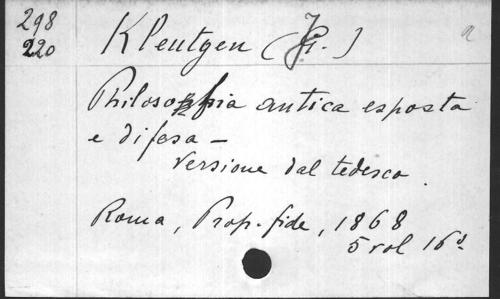 298
220
Kleutgen (G.)
Philosophia antica esposta
e difesa —
Versione dal tedesco.
Roma, Prop. fide, 1868
5 vol 16°